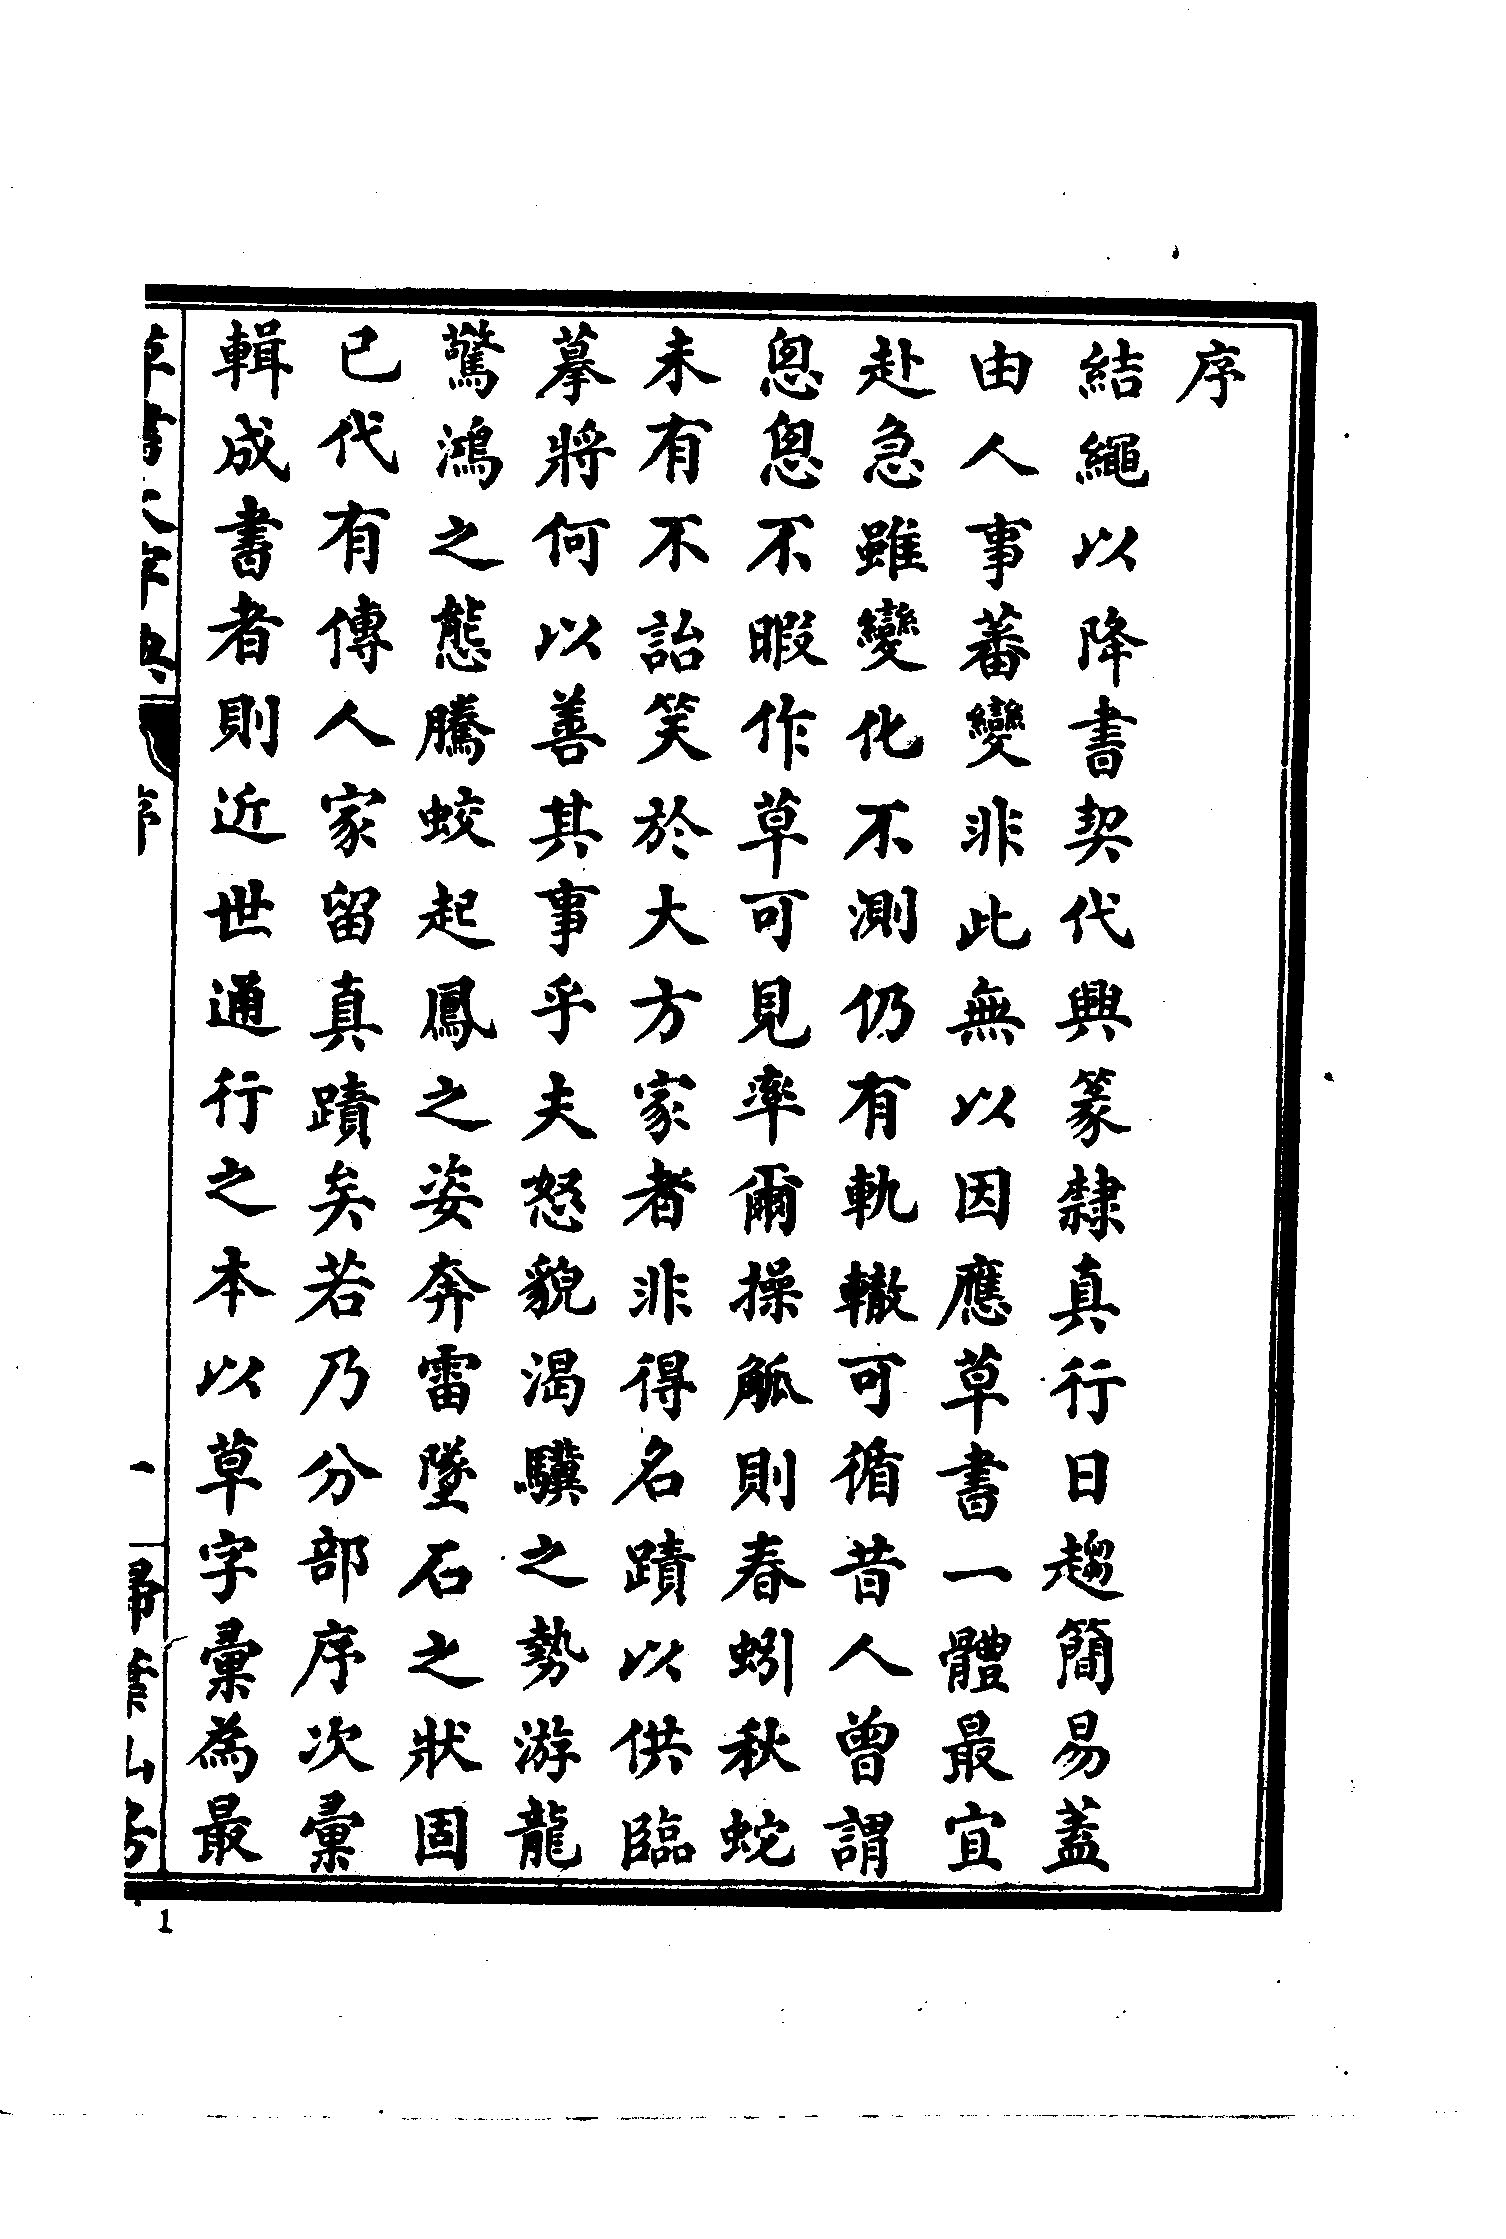 序
結繩以降書契代興篆隸真行日趨簡易蓋
由人事蕃變非此無以因應草書一體最宜
赴急雖變化不測仍有軌轍可循昔人曾謂
悤悤不暇作草可見率爾操觚則春蚓秋蛇
未有不詒笑於大方家者非得名蹟以供臨
摹將何以善其事乎夫怒貌渴驥之勢游龍
驚鴻之態騰蛟起鳳之姿奔雷墜石之狀固
已代有傳人家留真蹟矣若乃分部序次彙
輯成書者則近世通行之本以草字彙為最
草書大字典
序
一
掃葉山房
1